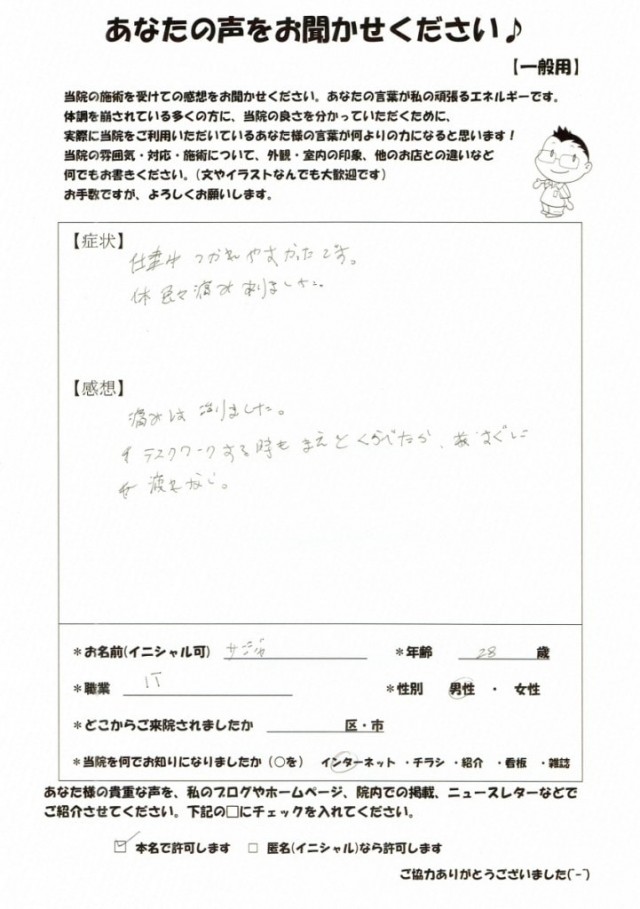 あなたの声をお聞かせください♪
【一般用】
当院の施術を受けての感想をお聞かせください。あなたの言葉が私の頑張るエネルギーです。
体調を崩されている多くの方に、当院の良さを分かっていただくために、
実際に当院をご利用いただいているあなた様の言葉が何よりの力になると思います！
当院の雰囲気・対応・施術について、外観・室内の印象、他のお店との違いなど
何でもお書きください。(文やイラストなんでも大歓迎です)
お手数ですが、よろしくお願いします。
【症状】
仕事中 つかれやすかったです。
体 色々 痛み 刺ました。
【感想】
痛みは 治りました。
デスクワークする時も まえとくらべたら、 すぐに
疲れない。
＊お名前(イニシャル可) サジャ
＊年齢 28 歳
＊職業 IT
＊性別 男性 ・ 女性
＊どこからご来院されましたか 区・市
＊当院を何でお知りになりましたか (○を) インターネット ・チラシ ・紹介 ・看板 ・雑誌
あなた様の貴重な声を、私のブログやホームページ、院内での掲載、ニュースレターなどで
ご紹介させてください。下記の□にチェックを入れてください。
☑ 本名で許可します □ 匿名(イニシャル)なら許可します
ご協力ありがとうございました(^-^)